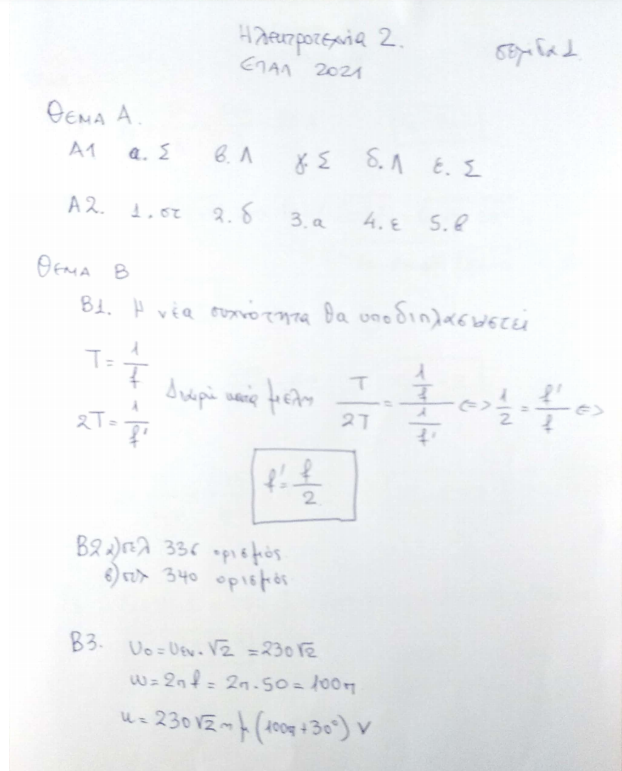 Ηλεκτροτεχνία 2. σελίδα 1
ΕΠΑΛ 2021
ΘΕΜΑ Α.
Α1 α. Σ β. Λ γ. Σ δ. Λ ε. Σ
Α2. 1. στ 2. δ 3. α 4. ε 5. β
ΘΕΜΑ Β
Β1. Η νέα συχνότητα θα υποδιπλασιαστεί
T = 1/f
2T = 1/f' Διαιρώ κατά μέλη T/2T = (1/f)/(1/f') <=> 1/2 = f'/f <=>
f' = f/2
Β2 α) σελ 336 ορισμός
β) σελ 340 ορισμός
Β3. U₀ = Uεν. √2 = 230√2
ω = 2πf = 2π. 50 = 100π
u = 230√2 ημ (100π + 30°) V